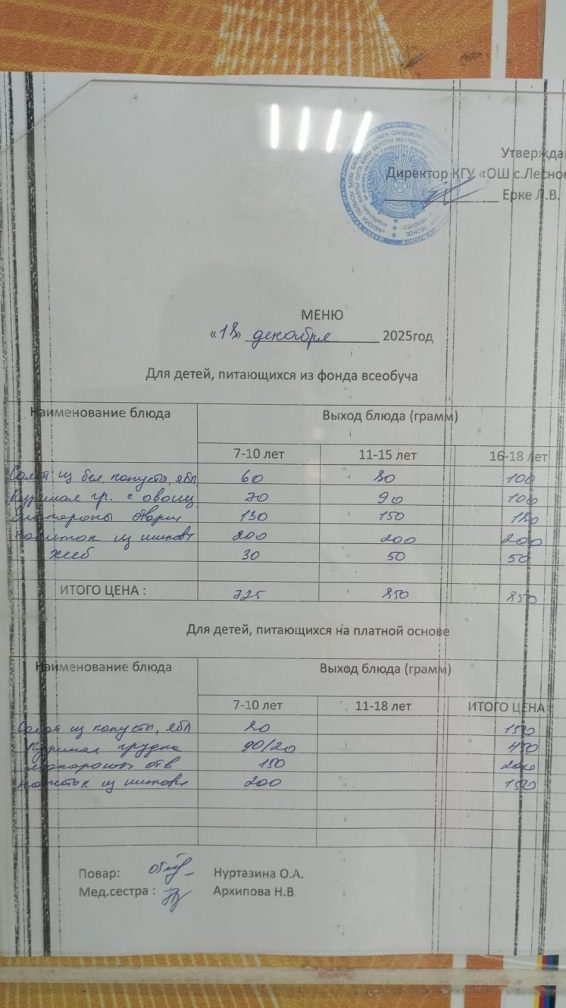 Утвержда
Директор КГУ «ОШ с.Лесно
Ерке Л.В.
МЕНЮ
«18» декабря 2025год
Для детей, питающихся из фонда всеобуча
Наименование блюда Выход блюда (грамм)
7-10 лет 11-15 лет 16-18 лет
Салат из бел капусты, ябл 60 80 100
Куриная гр. с овощ 70 90 100
Макароны отварн 130 150 180
напиток из шипов 200 200 200
хлеб 30 50 50
ИТОГО ЦЕНА : 725 850 850
Для детей, питающихся на платной основе
Наименование блюда Выход блюда (грамм)
7-10 лет 11-18 лет ИТОГО ЦЕНА
Салат из капусты, ябл 80 150
Куриная грудка 90/20 450
макароны отв 150 200
напиток из шипов 200 150
Повар: Нуртазина О.А.
Мед.сестра : Архипова Н.В